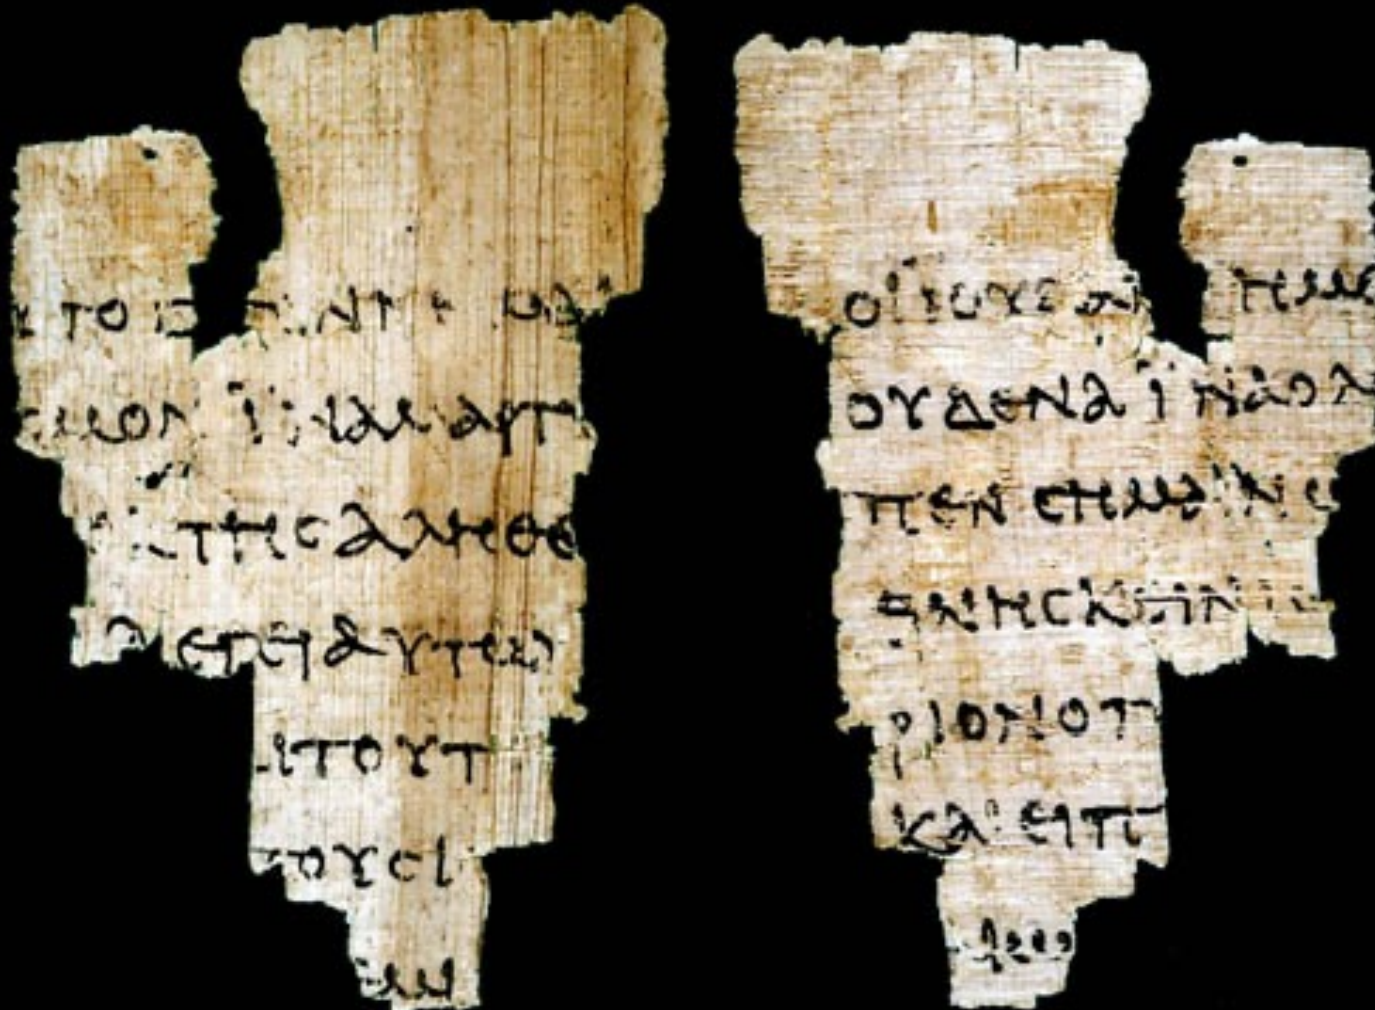 ΥΤΟ Γ ΓΕΝΝΗΜΑΙ
ϹΜΟΝ ΪΝΑ ΜΑΡΤΥ
ΕΚ ΤΗϹ ΑΛΗΘΕ
ΛΕΓΕΙ ΑΥΤΩ
ΑΙ ΤΟΥΤ
ΤΟΥϹ Ι
ΟΙ ΪΟΥΔΑΙ ΗΜΕ
ΟΥΔΕΝΑ ΪΝΑ Ο Λ
ΠΕΝ ϹΗΜΑΙΝΩ
ΘΝΗϹΚΕΙΝ ΙϹ
ΡΙΟΝ Ο Π
ΚΑΙ ΕΙΠ